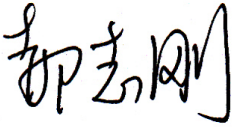 郝志刚